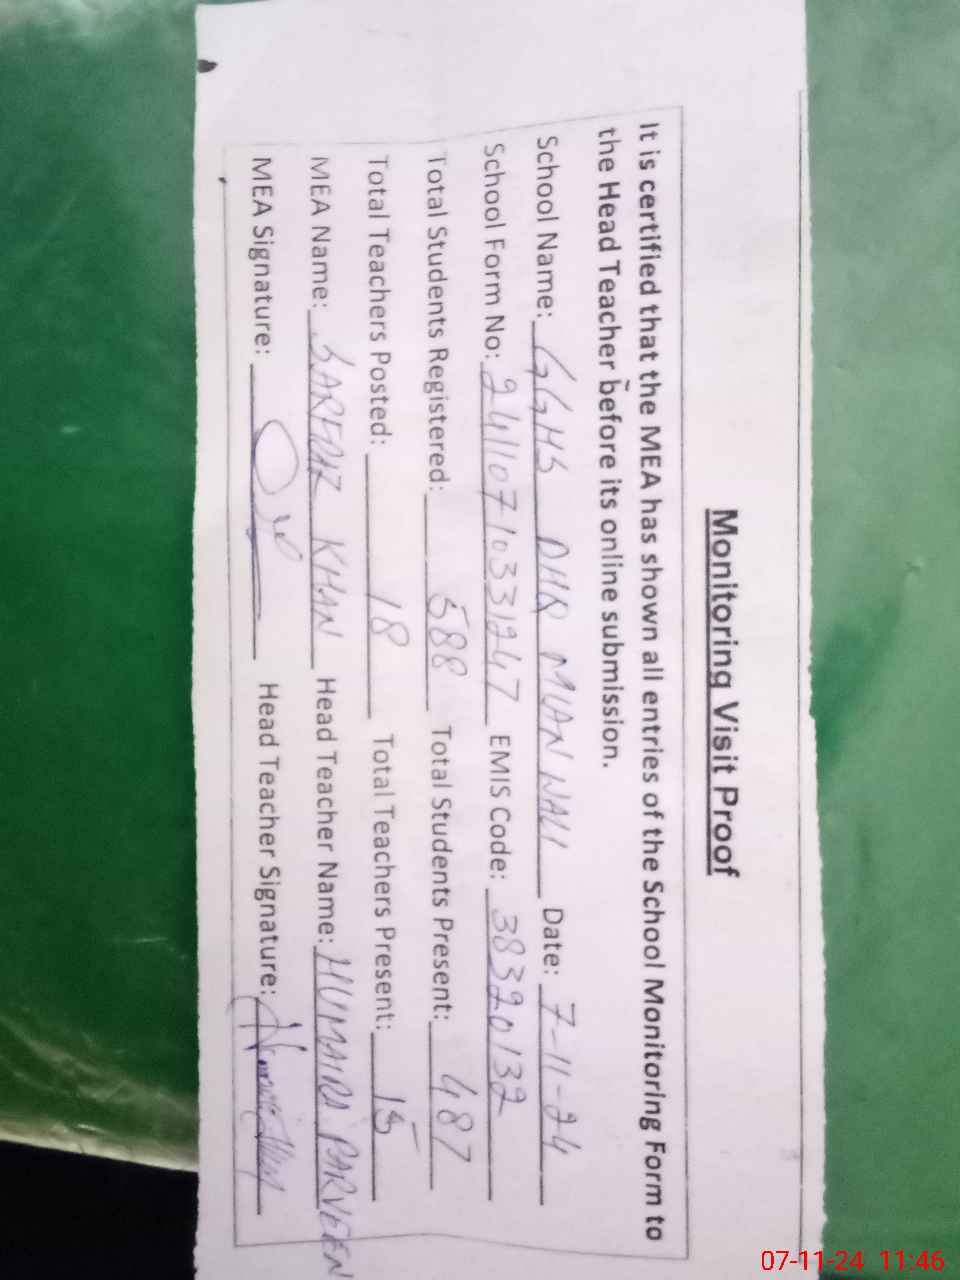 Monitoring Visit Proof
It is certified that the MEA has shown all entries of the School Monitoring Form to
the Head Teacher before its online submission.
School Name: GGHS DHQ MIANWALI Date: 7-11-24
School Form No: 24110710331247 EMIS Code: 38320132
Total Students Registered: 588 Total Students Present: 487
Total Teachers Posted: 18 Total Teachers Present: 15
MEA Name: SARFRAZ KHAN Head Teacher Name: HUMAIRA PARVEEN
MEA Signature: Head Teacher Signature:
07-11-24 11:46